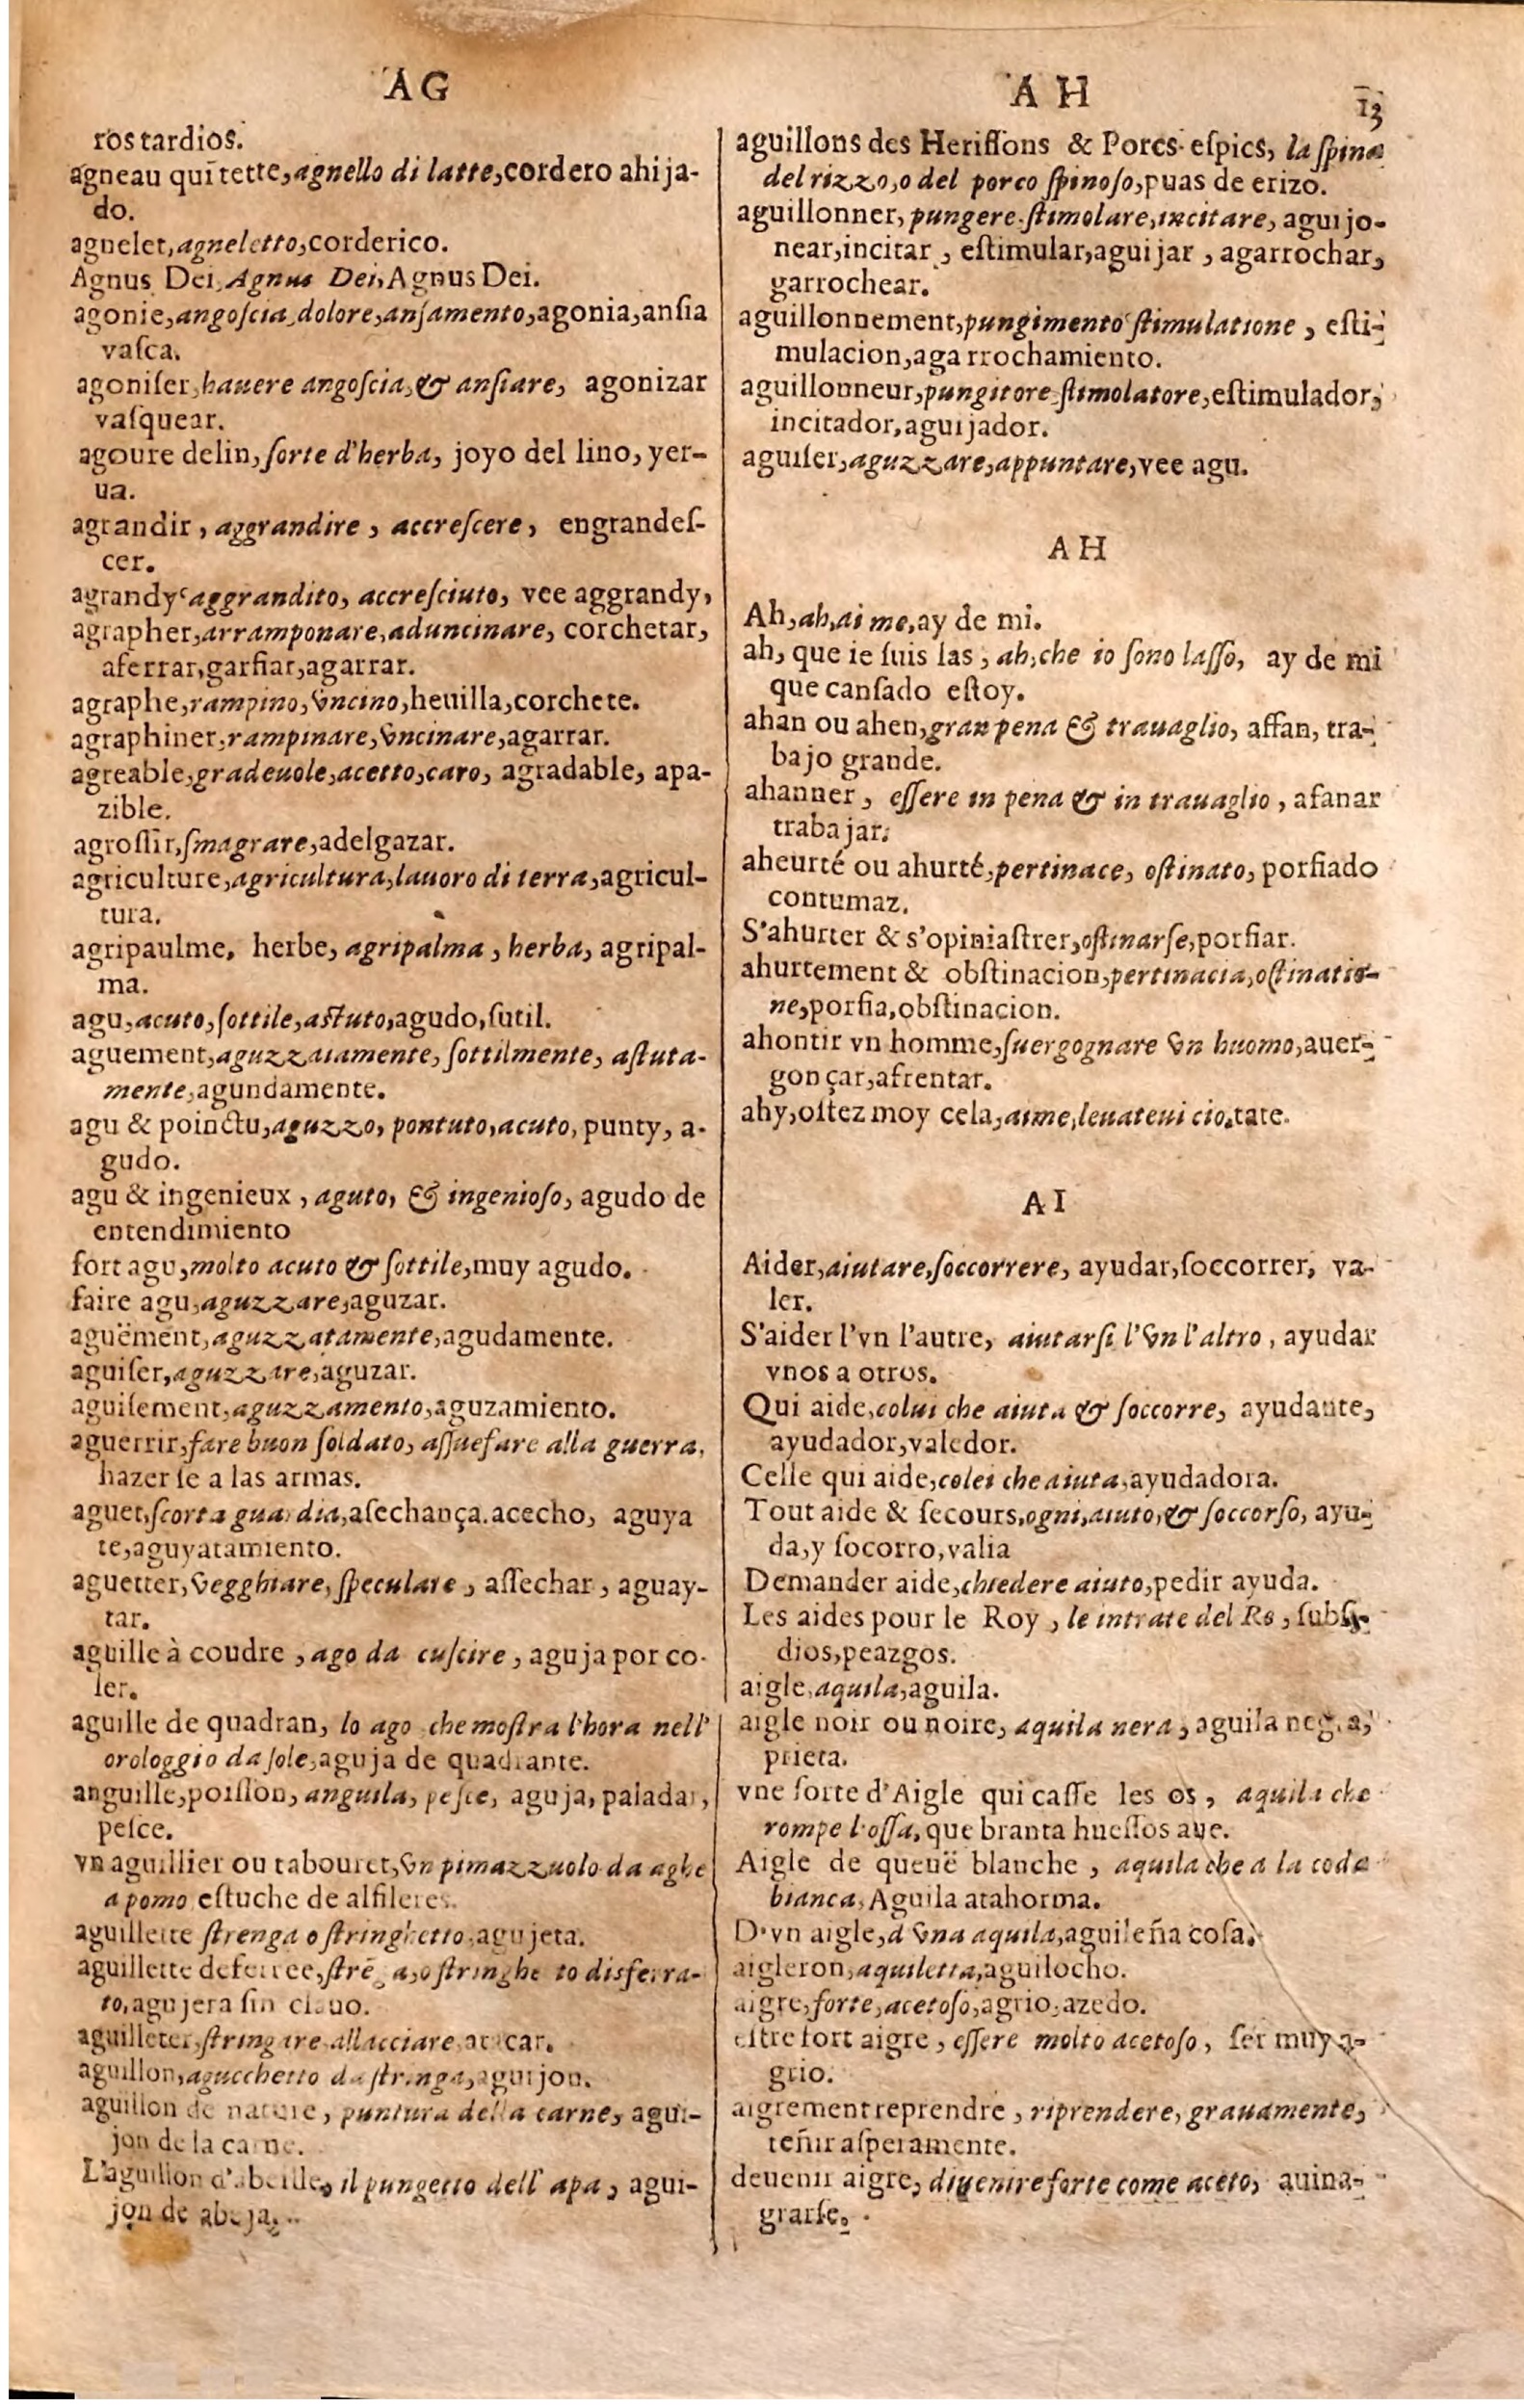 AG
ros tardios.
agneau qui tette, agnello di latte, cordero ahija-
do.
agnelet, agneletto, corderico.
Agnus Dei, Agnus Dei, Agnus Dei.
agonie, angoſcia, dolore, anſamento, agonia, anſia
vaſca.
agoniſer, hauere angoſcia, & anſiare, agonizar
vaſquear.
agoure delin, ſorte d'herba, joyo del lino, yer-
ua.
agrandir, aggrandire, accreſcere, engrandeſ-
cer.
agrandy, aggrandito, accreſciuto, vee aggrandy,
agrapher, arramponare, aduncinare, corchetar,
aferrar, garfiar, agarrar.
agraphe, rampino, vncino, heuilla, corchete.
agraphiner, rampinare, vncinare, agarrar.
agreable, gradeuole, acetto, caro, agradable, apa-
zible.
agroſſir, ſmagrare, adelgazar.
agriculture, agricultura, lauoro di terra, agricul-
tura.
agripaulme, herbe, agripalma, herba, agripal-
ma.
agu, acuto, ſottile, aſtuto, agudo, ſutil.
aguement, aguzzatamente, ſottilmente, aſtuta-
mente, agundamente.
agu & poinctu, aguzzo, pontuto, acuto, punty, a-
gudo.
agu & ingenieux, aguto, & ingenioſo, agudo de
entendimiento
fort agu, molto acuto & ſottile, muy agudo.
faire agu, aguzzare, aguzar.
aguëment, aguzzatamente, agudamente.
aguiſer, aguzzare, aguzar.
aguiſement, aguzzamento, aguzamiento.
aguerrir, fare buon ſoldato, aſſuefare alla guerra,
hazer ſe a las armas.
aguet, ſcorta guardia, aſechança. acecho, aguya
te, aguyatamiento.
aguetter, vegghiare, ſpeculare, aſſechar, aguay-
tar.
aguille à coudre, ago da cuſcire, aguja por co-
ſer.
aguille de quadran, lo ago che moſtra l'hora nell'
orologgio da ſole, aguja de quadrante.
anguille, poiſſon, anguila, peſce, aguja, paladar,
peſce.
vn aguillier ou tabouret, vn pimazzuolo da aghe
a pomo eſtuche de alfileres.
aguillette ſtrenga o ſtringhetto, agujeta.
aguillette deferree, ſtrēga, o ſtringhetto disferra-
to, agujera ſin clauo.
aguilleter, ſtringare allacciare, atacar.
aguillon, agucchetto da ſtringa, aguijon.
aguillon de nature, puntura della carne, agui-
jon de la carne.
L'aguillon d'abeille, il pungetto dell' apa, agui-
jon de abeja.
AH
13
aguillons des Heriſſons & Porcs-eſpics, la ſpina
del rizzo, o del porco ſpinoſo, puas de erizo.
aguillonner, pungere. ſtimolare, incitare, aguijo-
near, incitar, eſtimular, aguijar, agarrochar,
garrochear.
aguillonnement, pungimento ſtimulatione, eſti-
mulacion, agarrochamiento.
aguillonneur, pungitore ſtimolatore, eſtimulador,
incitador, aguijador.
aguiſer, aguzzare, appuntare, vee agu.
AH
Ah, ah, ai me, ay de mi.
ah, que ie ſuis las, ah, che io ſono laſſo, ay de mi
que canſado eſtoy.
ahan ou ahen, gran pena & trauaglio, affan, tra-
bajo grande.
ahanner, eſſere in pena & in trauaglio, afanar
trabajar.
aheurté ou ahurté, pertinace, oſtinato, porfiado
contumaz.
S'ahurter & s'opiniaſtrer, oſtinarſe, porfiar.
ahurtement & obſtinacion, pertinacia, oſtinatio-
ne, porfia, obſtinacion.
ahontir vn homme, ſuergognare vn huomo, auer-
gonçar, afrentar.
ahy, oſtez moy cela, aime, leuateui cio, tate.
AI
Aider, aiutare, ſoccorrere, ayudar, ſoccorrer, va-
ler.
S'aider l'vn l'autre, aiutarſi l'vn l'altro, ayudar
vnos a otros.
Qui aide, colui che aiuta & ſoccorre, ayudante,
ayudador, valedor.
Celle qui aide, colei che aiuta, ayudadora.
Tout aide & ſecours, ogni, aiuto, & ſoccorſo, ayu-
da, y ſocorro, valia
Demander aide, chiedere aiuto, pedir ayuda.
Les aides pour le Roy, le intrate del Re, ſubſi-
dios, peazgos.
aigle, aquila, aguila.
aigle noir ou noire, aquila nera, aguila negra,
prieta.
vne ſorte d'Aigle qui caſſe les os, aquila che
rompe l'oſſa, que branta hueſſos aue.
Aigle de queuë blanche, aquila che a la coda
bianca, Aguila atahorma.
D'vn aigle, d vna aquila, aguileña coſa.
aigleron, aquiletta, aguilocho.
aigre, forte, acetoſo, agrio, azedo.
eſtre fort aigre, eſſere molto acetoſo, ſer muy a-
grio.
aigrement reprendre, riprendere, grauamente,
teñir aſperamente.
deuenir aigre, diuenire forte come aceto, auina-
grarſe.